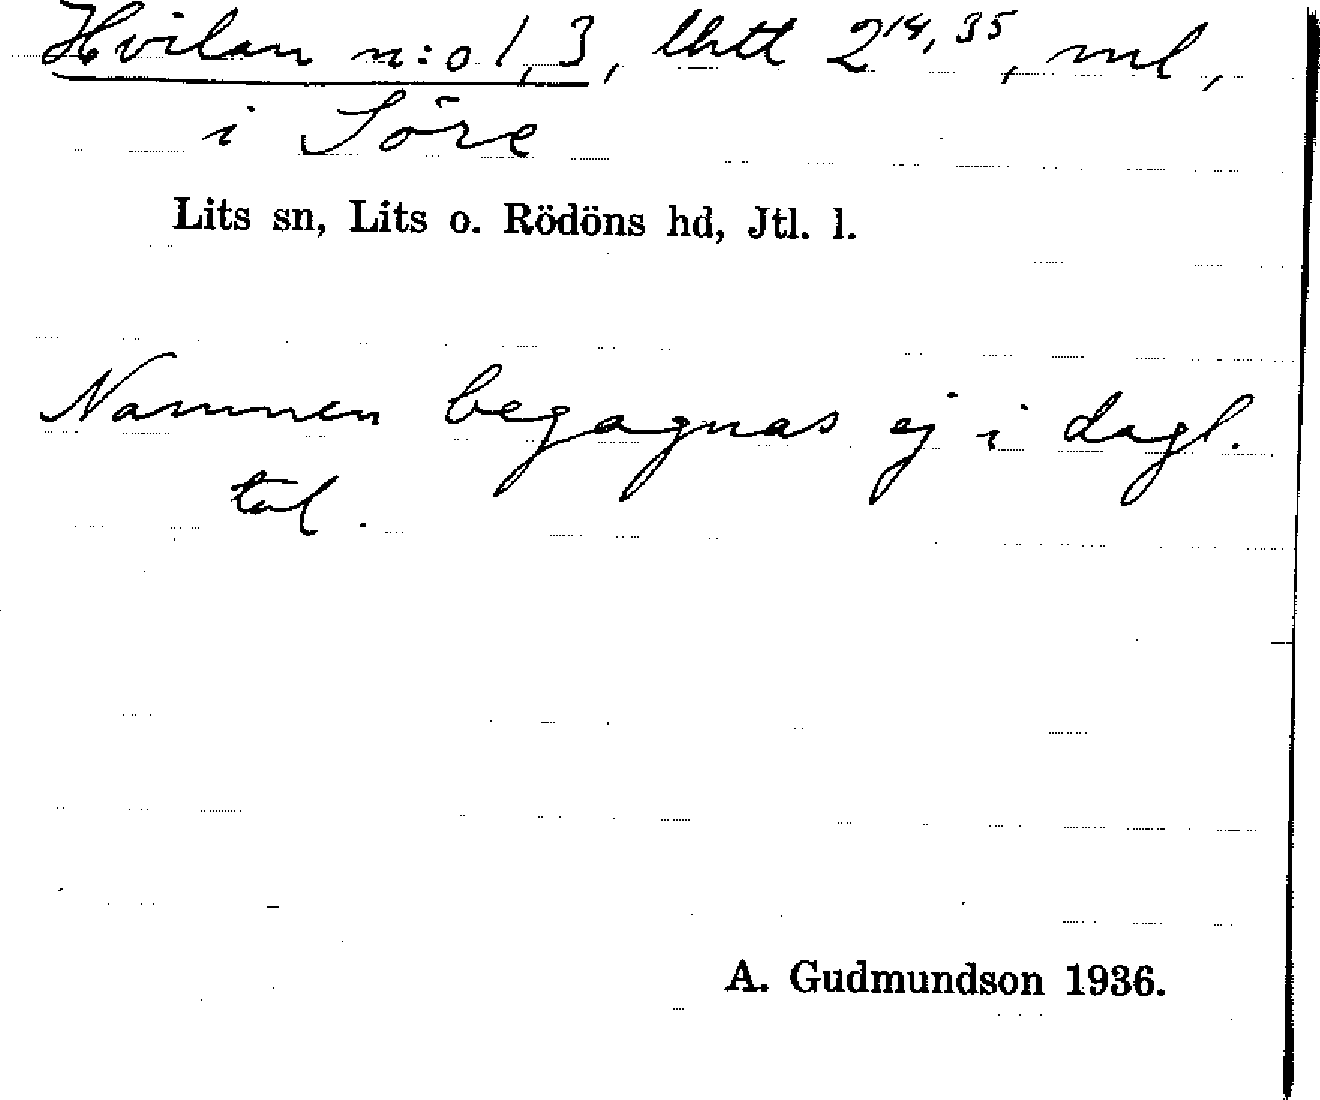 Hvilan n:o 1,3, lhtl 2¹⁴,³⁵, ml,
i Söre
Lits sn, Lits o. Rödöns hd, Jtl. l.
Namnen begagnas ej i dagl.
tal.
A. Gudmundson 1936.